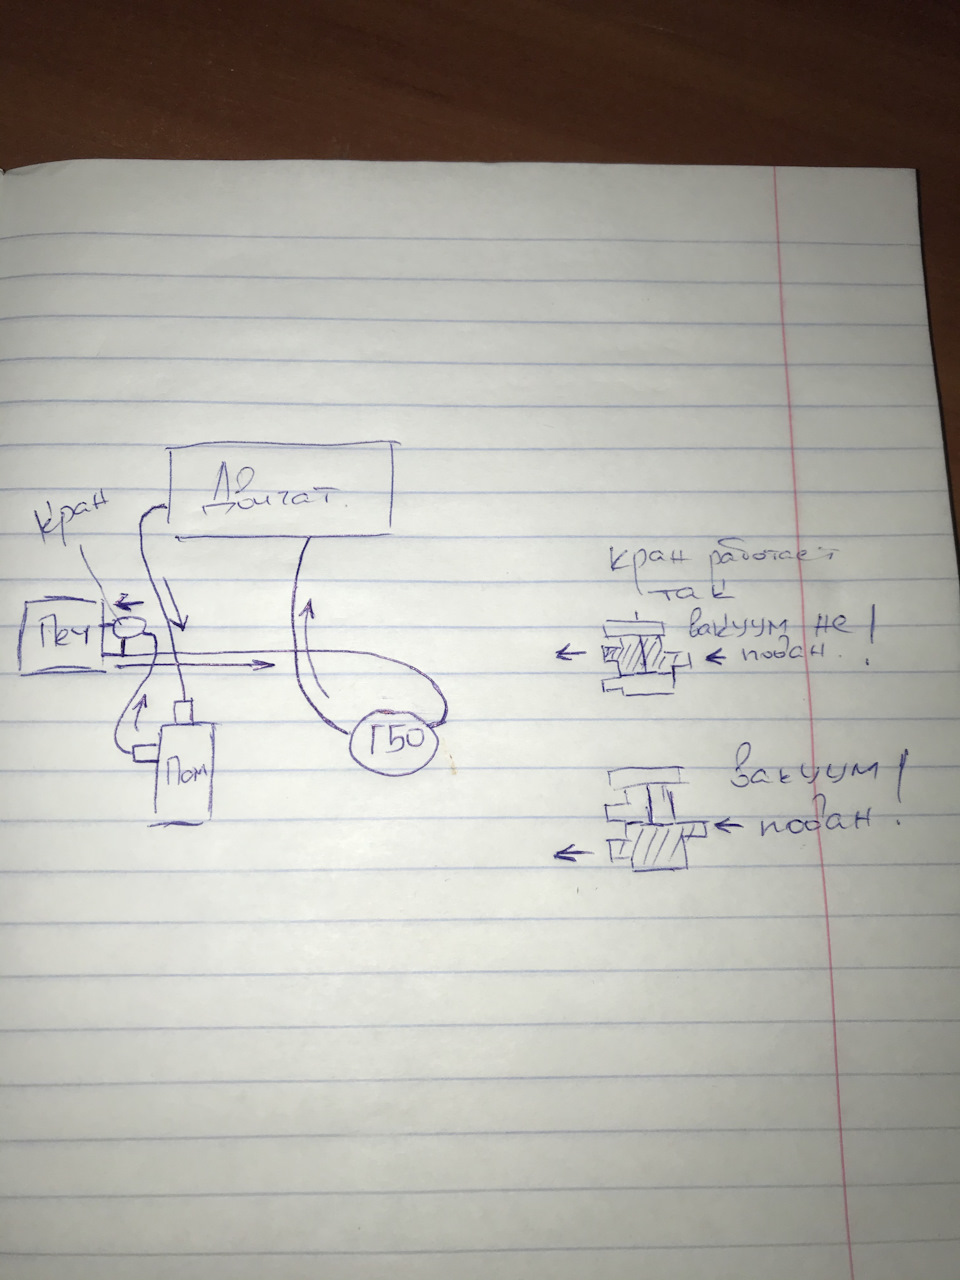 Двигат.
Кран
Печ
Пом
ГБО
Кран работает
так
вакуум не !
подан.
Вакуум !
подан.